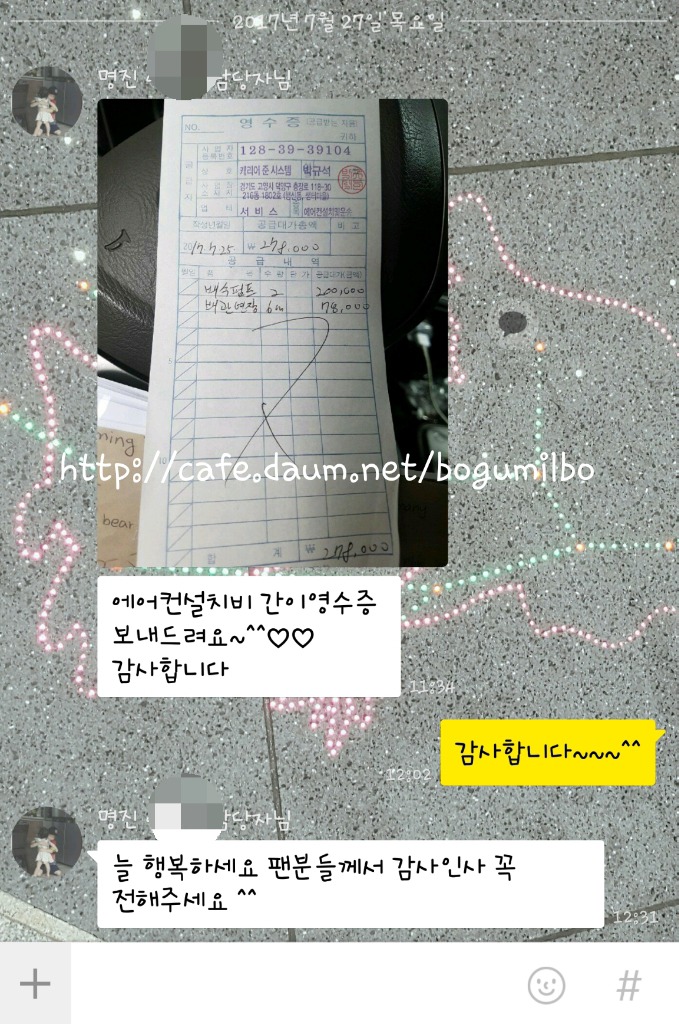 2017년 7월 27일 목요일
명진 담당자님
NO. 영수증 (공급받는 자용)
귀하
사업자등록번호 128-39-39104
상호 캐리어 준 시스템 박규석
경기도 고양시 덕양구 충장로 118-30
업태 서비스
작성년월일 공급대가총액 비고
2017.7.25 ₩ 278,000
공급내역
배수펌프 2 200,000
배관연장 6m 78,000
합계 ₩ 278,000
ning
bear
http://cafe.daum.net/bogumilbo
에어컨설치비 간이영수증
보내드려요~^^♡♡
감사합니다
11:34
감사합니다~~~^^
12:02
명진 담당자님
늘 행복하세요 팬분들께서 감사인사 꼭
전해주세요 ^^
12:31
#